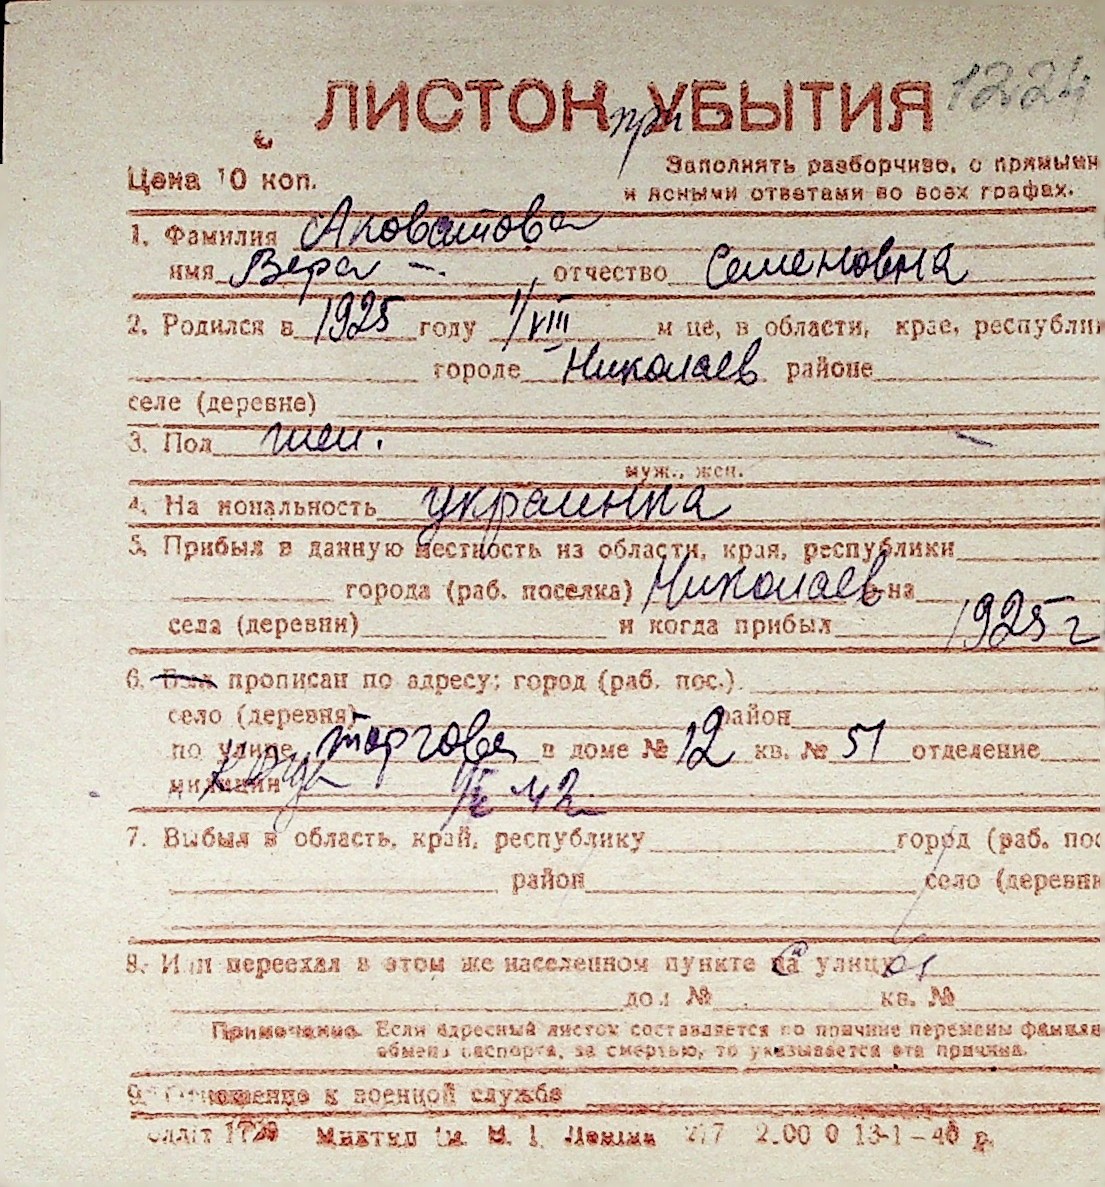 ЛИСТОК при УБЫТИЯ 1224
Цена 10 коп.
Заполнять разборчиво, с прямыми
и ясными ответами во всех графах.
1. Фамилия Аковантова
имя Вера отчество Семеновна
2. Родился в 1925 году 1/VIII м це, в области, крае, республи
городе Николаев районе
селе (деревне)
3. Пол жен.
муж., жен.
4. На иональность украинка
5. Прибыл в данную местность из области, края, республики
города (раб. поселка) Николаев на
села (деревни) и когда прибыл 1925 г
6. Был прописан по адресу: город (раб. пос.)
село (деревня) район
по улице торгова в доме № 12 кв. № 51 отделение
милиции
7. Выбыл в область, край, республику город (раб. пос
район село (деревня
8. Или переехал в этом же населенном пункте на улицу
дом № кв. №
Примечание. Если адресный листок составляется по причине перемены фамили
обмена паспорта, за смертью, то указывается эта причина.
9. Отношение к военной службе
им. В. И. Ленина 277 2.00 0 13-1-40 р.